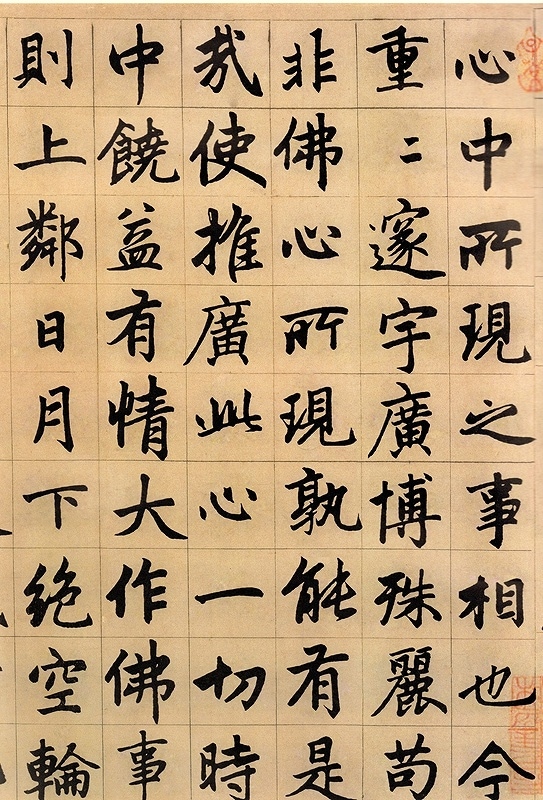 心中所現之事相也今
重二邃宇廣博殊麗苟
非佛心所現孰能有是
哉使推廣此心一切時
中饒益有情大作佛事
則上鄰日月下絶空輪